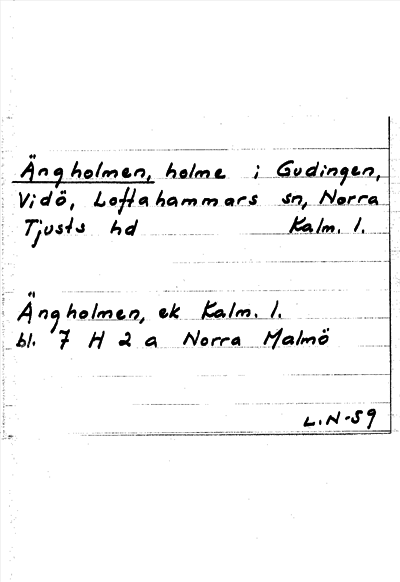 Ängholmen, holme i Gudingen,
Vidö, Loftahammars sn, Norra
Tjusts hd Kalm. l.
Ängholmen, ek Kalm. l.
bl. 7 H 2 a Norra Malmö
L.N-59